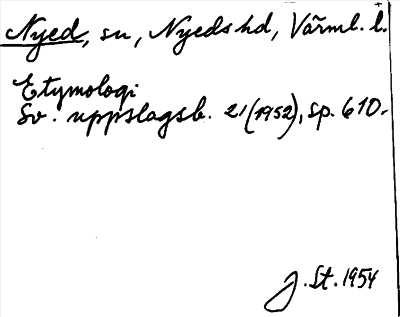 Nyed, sn, Nyeds hd, Värml. l.
Etymologi
Sv. uppslagsb. 21 (1952), sp. 610.
J. St. 1954